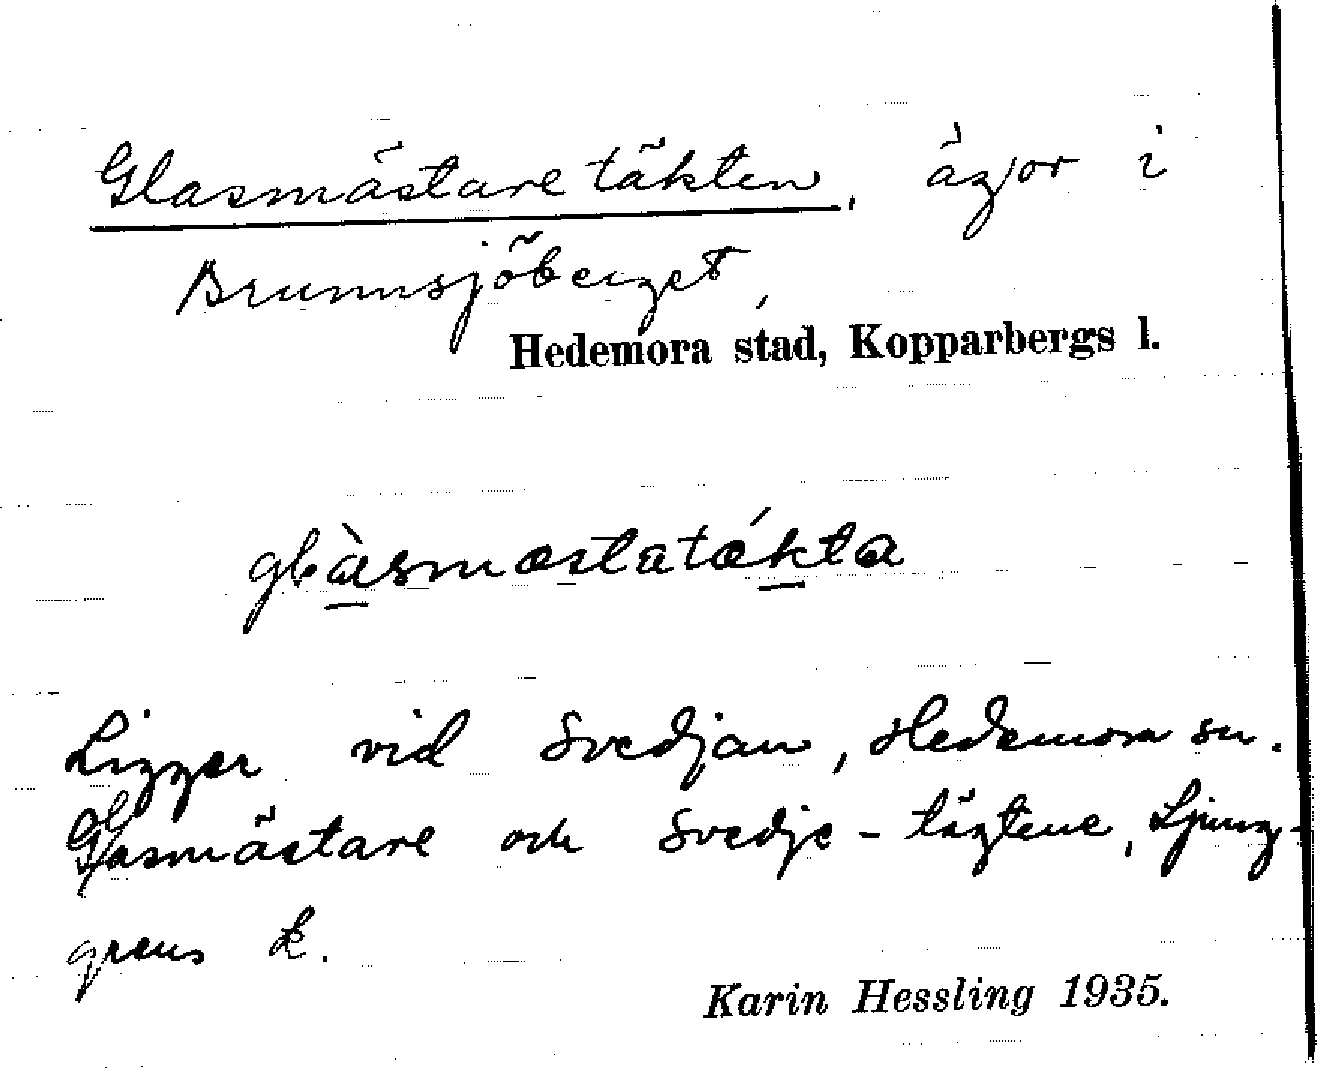 Glasmästaretäkten, ägor i
Brunnsjöberget,
Hedemora stad, Kopparbergs l.
glàsmæstatǽkta
Ligger vid Svedjan, Hedemora sn.
Glasmästare och Svedje-tägtene, Ljung-
grens k.
Karin Hessling 1935.